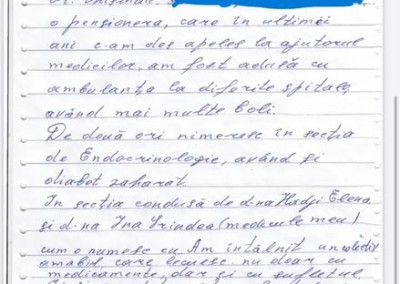 or. Chișinău.
o pensionera, care în ultimii
ani c-am des apelez la ajutorul
medicilor, am fost adusă cu
ambulanța la diferite spitale,
având mai multe boli.
De două ori nimeresc în secția
de Endocrinologie, având și
diabet zaharat.
In secția condusă de d-na Hadji Elena
și d-na Ina Grindea (medicule meu)
cum o numesc eu. Am întâlnit un colectiv
amabil, care lecuiesc nu doar cu
medicamente, dar și cu sufletul.